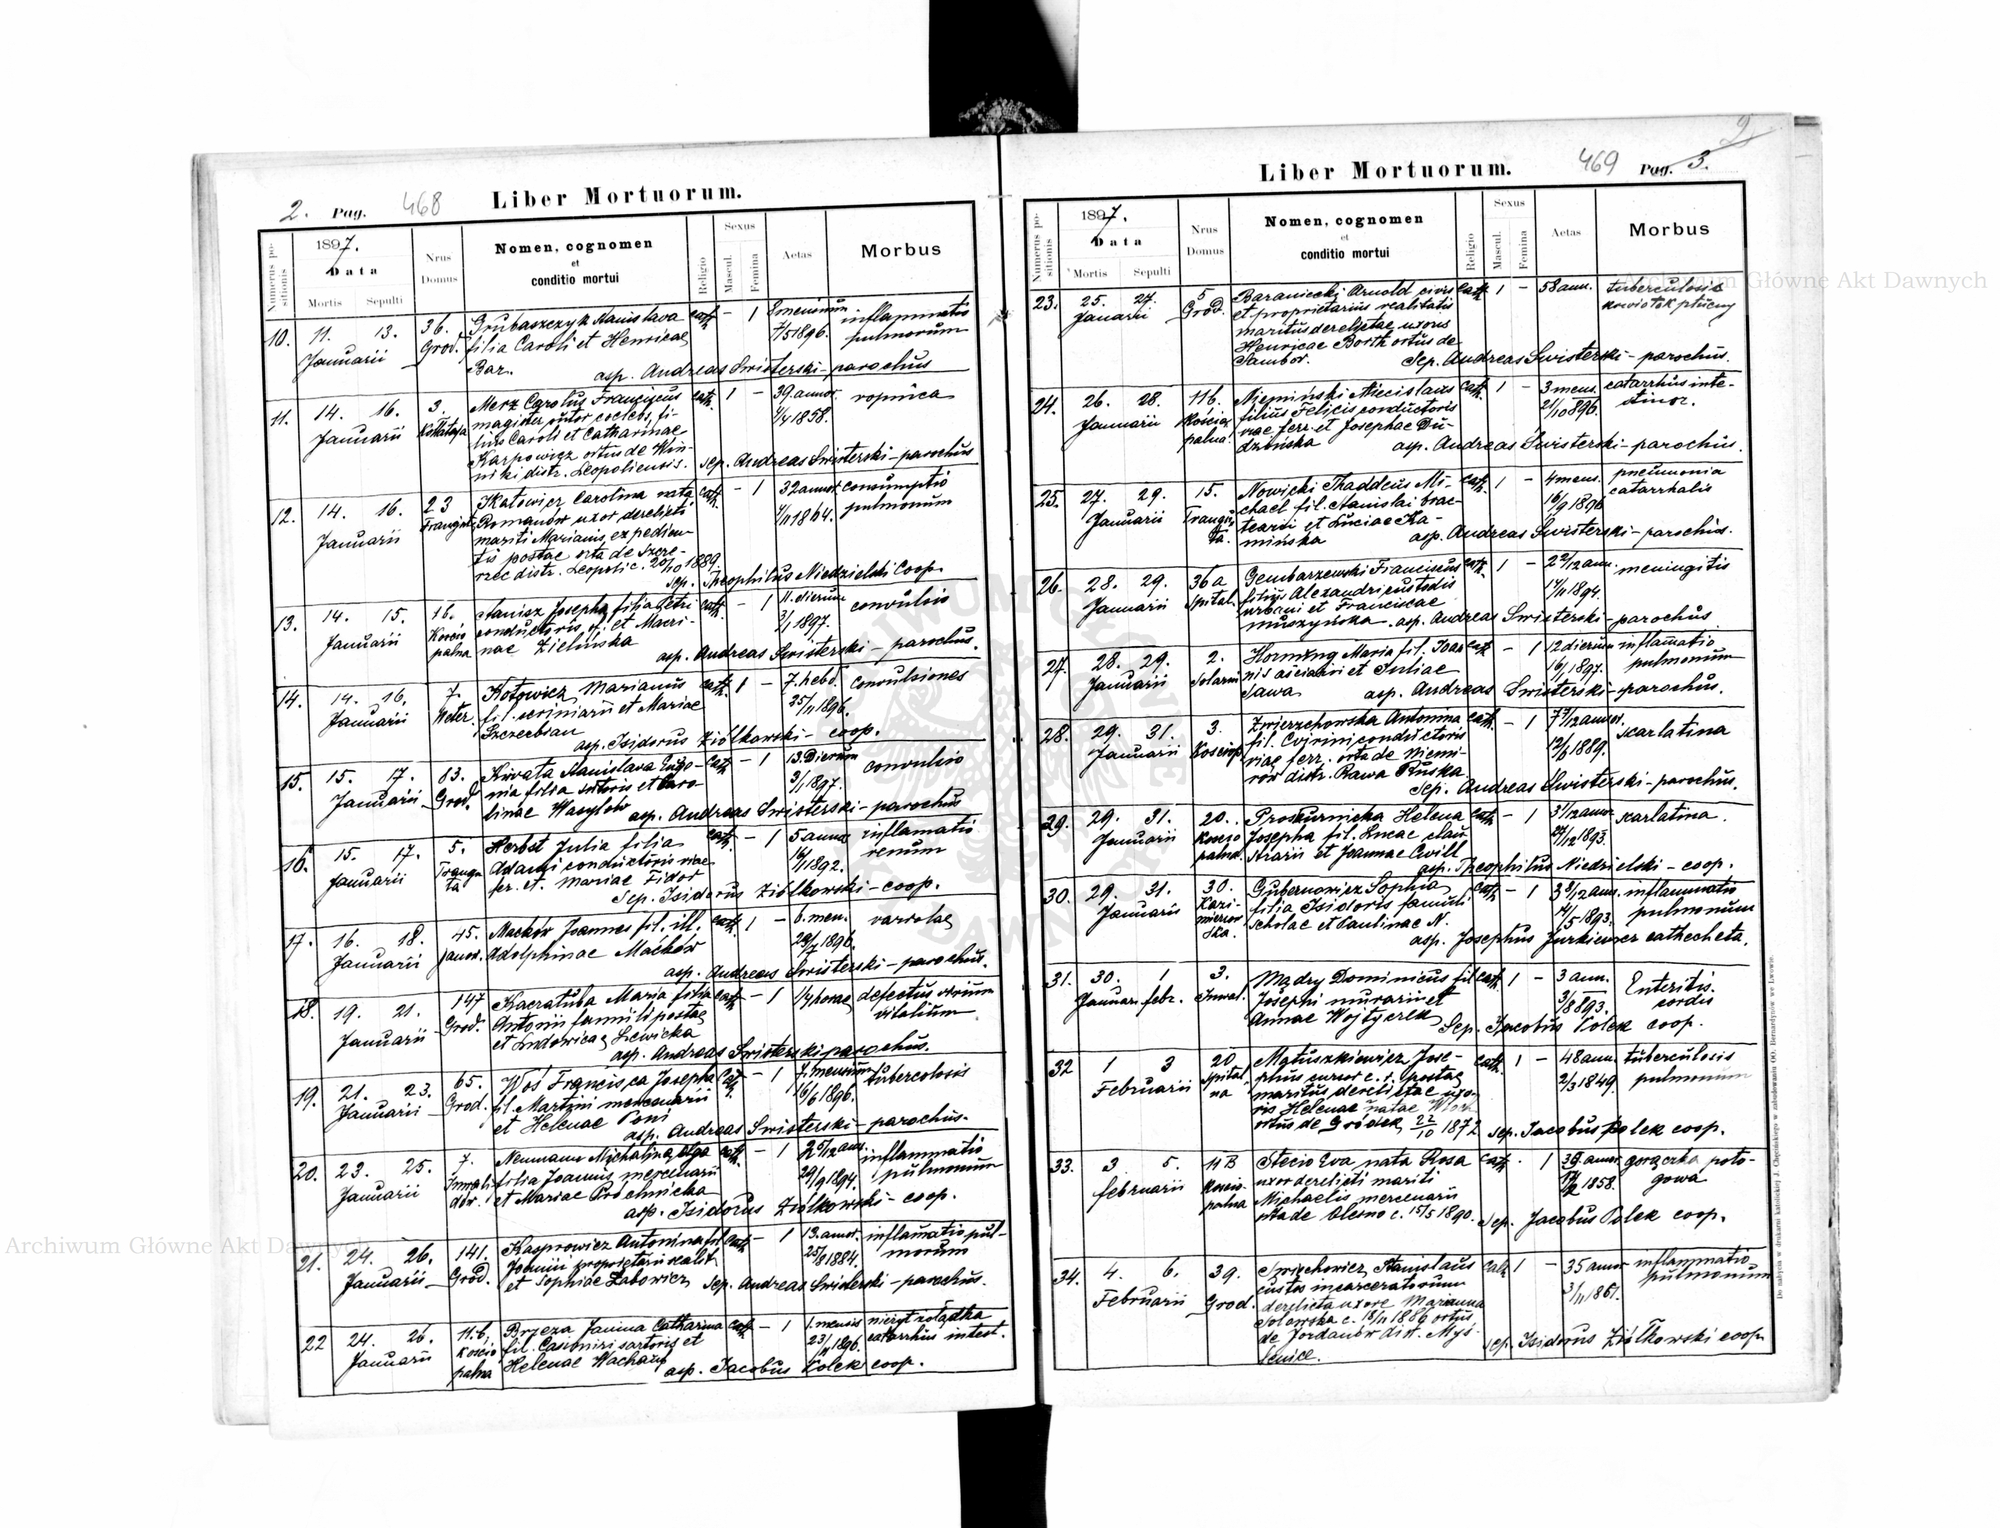 2. Pag. 468 Liber Mortuorum.
Numerus positionis
1897.
Data
Mortis Sepulti
Nrus Domus
Nomen, cognomen
et
conditio mortui
Religio
Sexus
Mascul. Femina
Aetas
Morbus
10. 11. 13. 36. Grubaszczyk Stanislava cath. – 1 8 mensium inflammatio
Januarii Grod. filia Caroli et Henricae 7/5 1896. pulmorum
Bar. asp. Andreas Swisterski – parochus
11. 14. 16. 3. Merz Carolus Franciscus cath. 1 – 39. annor. ropnica
Januarii Kołłataja magister sutor coelebs, fi- 1/4 1858.
lius Caroli et Catharinae
Karpowicz ortus de Win-
niki distr. Leopoliensis. sep. Andreas Swisterski – parochus
12. 14. 16. 23 Katowicz Carolina nata cath. – 1 32 annor. consumptio
Januarii Romanów uxor derelicti 1864. pulmonum
mariti Mariani expedien-
tis postae orta de Szcze-
rzec distr. Leopolic. 20/10 1889.
sep. Theophilus Niedzielski Coop.
13. 14. 15. 16. Josepha filia Petri cath. – 1 11. dierum convulsio
Januarii Kościo conductoris et Mari- 3/1 1897.
palna nae Zielińska
asp. Andreas Swisterski – parochus.
14. 14. 16. 7. Kotowicz Marianus cath. 1 – 7. hebd. convulsiones
Januarii Weter. fil. scriniarii et Mariae 25/11 1896.
Szczerbian
asp. Isidorus Ziółkowski – coop.
15. 15. 17. 83. Stanislava Euge- cath. – 1 13. Dierum convulsio
Januarii Grod. nia filia sutoris et Caro- 3/1 1897.
linae Wasylów asp. Andreas Swisterski – parochus
16. 15. 17. 5. Herbst Julia filia cath. – 1 5 annor. inflamatio
Januarii Traugu Adami conductoris viae 16/1 1892. renum
ta fer. et Mariae Fidor
Sep. Isidorus Ziółkowski – coop.
17. 16. 18. 45. Maćków Joannes fil. ill. cath. 1 – 6. men. variolae
Januarii Janow. Adolphinae Maćków 29/7 1896.
asp. Andreas Swisterski – parochus.
18. 19. 21. 147 Maria filia cath. – 1 1/4 horae defectus virium
Januarii Grod. Antonii famuli postae vitalium
et Ludovicae Lewicka
asp. Andreas Swisterski parochus.
19. 21. 23. 65. Woś Francisca Josepha cath. – 1 7. mensium tubercolosis
Januarii Grod. fil. Martini mercenarii 16/6 1896.
et Helenae Poni
asp. Andreas Swisterski – parochus.
20. 23. 25. 7. Neumann Michalina Olga cath. – 1 2 5/12 ann. inflammatio
Januarii Inwali filia Joannis mercenarii 29/9 1894. pulmonum
dów. et Mariae Prochnicka
asp. Isidorus Ziółkowski – coop.
21. 24. 26. 141. Kasprowicz Antonina fil cath. – 1 13. annor. inflamatio pul-
Januarii Grod. Joannis proprietarii realit. 25/8 1884. morum
et Sophiae Zabowicz sep. Andreas Swisterski – parochus.
22 24. 26. 11.b. Brzeza Janina Catharina cath. – 1 1. mensis nieżyt żołądka
Januarii Kościo fil. Casimiri sartoris et 23/11 1896. catarrhus intest.
palna Helenae Wachauf
asp. Jacobus Polek coop.
Liber Mortuorum. 469 Pag. 3.
2
Numerus positionis
1897.
Data
Mortis Sepulti
Nrus Domus
Nomen, cognomen
et
conditio mortui
Religio
Sexus
Mascul. Femina
Aetas
Morbus
23. 25. 27. 5 Baraniecki Arnold civis cath. 1 – 58 ann. tuberculosis
Januarii Grod. et proprietarius realitatis
maritus derelictae uxoris
Henricae Borth ortus de
Sambor. Sep. Andreas Swisterski – parochus.
24. 26. 28. 116. Niemiński Miecislaus cath. 1 – 3 mens. catarrhus inte-
Januarii Kościo filius Felicis conductoris 21/10 896. stinor.
palna viae ferr. et Josephae Du-
dzińska asp. Andreas Swisterski – parochus.
25. 27. 29. 15. Nowicki Thaddeus Mi- cath. 1 – 4 mens. pneumonia
Januarii Traugu chael fil. Stanislai brac- 16/9 1896 catarrhalis
ta. tearii et Luciae Ka-
mińska asp. Andreas Swisterski – parochus.
26. 28. 29. 36a Gembarzewski Franciscus cath. 1 – 2 2/12 ann. meningitis
Januarii Spital. filius Alexandri custodis 17/11 1894.
urbani et Franciscae
Muszyńska. asp. Andreas Swisterski – parochus
27. 28. 29. 2. Hornung Maria fil. Joan cath. – 1 12 dierum inflamatio
Januarii Solarni nis asciarii et Juliae 16/1 1897. pulmonum
Sawa asp. Andreas Swisterski – parochus.
28. 29. 31. 3. Zwierzchowska Antonina cath. – 1 7 7/12 annor. scarlatina
Januarii Kosciop fil. Cyrini conductoris 1889.
viae ferr. orta de Niemi-
rów distr. Rawa Ruska
Sep. Andreas Swisterski – parochus.
29. 29. 31. 20. Proskurnicka Helena cath. – 1 3 1/12 annor. scarlatina.
Januarii Koscio Josepha fil. Lucae clau 27/12 1893.
palna. strarii et Joannae Cwill
asp. Theophilus Niedzielski – coop.
30. 29. 31. 30. Gubernowicz Sophia cath. – 1 3 8/12 ann. inflammatio
Januarii Kazi- filia Isidoris famuli 14/5 1893. pulmonum
mierzow scholae et Paulinae N.
ska. asp. Josephus Jurkiewicz cathecheta.
31. 30. 1 3. Mądry Dominicus fil cath. 1 – 3 ann. Enteritis
Januari febr. Inwal. Josephi murarii et 3/8 893. cordis
Annae Wojtyczek Sep. Jacobus Polek coop.
32 1 3 20 Matuszkiewicz Jose- cath. 1 – 48 ann. tuberculosis
Februarii Spital phus cursor c. r. postae 2/3 1849. pulmonum
na maritus derelictae uxo-
ris Helenae natae Wloch
ortus de Gródek 22/10 1872 sep. Jacobus Polek coop.
33. 3 5. 11 B Stecio Eva nata Rosa cath. . 1 39. annor. gorączka poło-
februarii Koscio uxor derelicti mariti 1858. gowa
palna Michaelis mercenarii
orta de Olesno c. 15/5 1890. Sep. Jacobus Polek coop.
34. 4. 6. 39. Stanislaus cath 1 – 35 annor inflammatio
Februarii Grod. custos incarceratorum 3/11 1861. pulmonum
derelicta uxore Marianna
Solowska c. 16/11 1886 ortus
de Jordanów dist. Myś-
lenice. sep. Isidorus Ziółkowski coop
Do nabycia w drukarni katolickiej J. Chęcińskiego w zabudowaniu OO. Bernardynów we Lwowie.
Archiwum Główne Akt Dawnych
Archiwum Główne Akt Dawnych